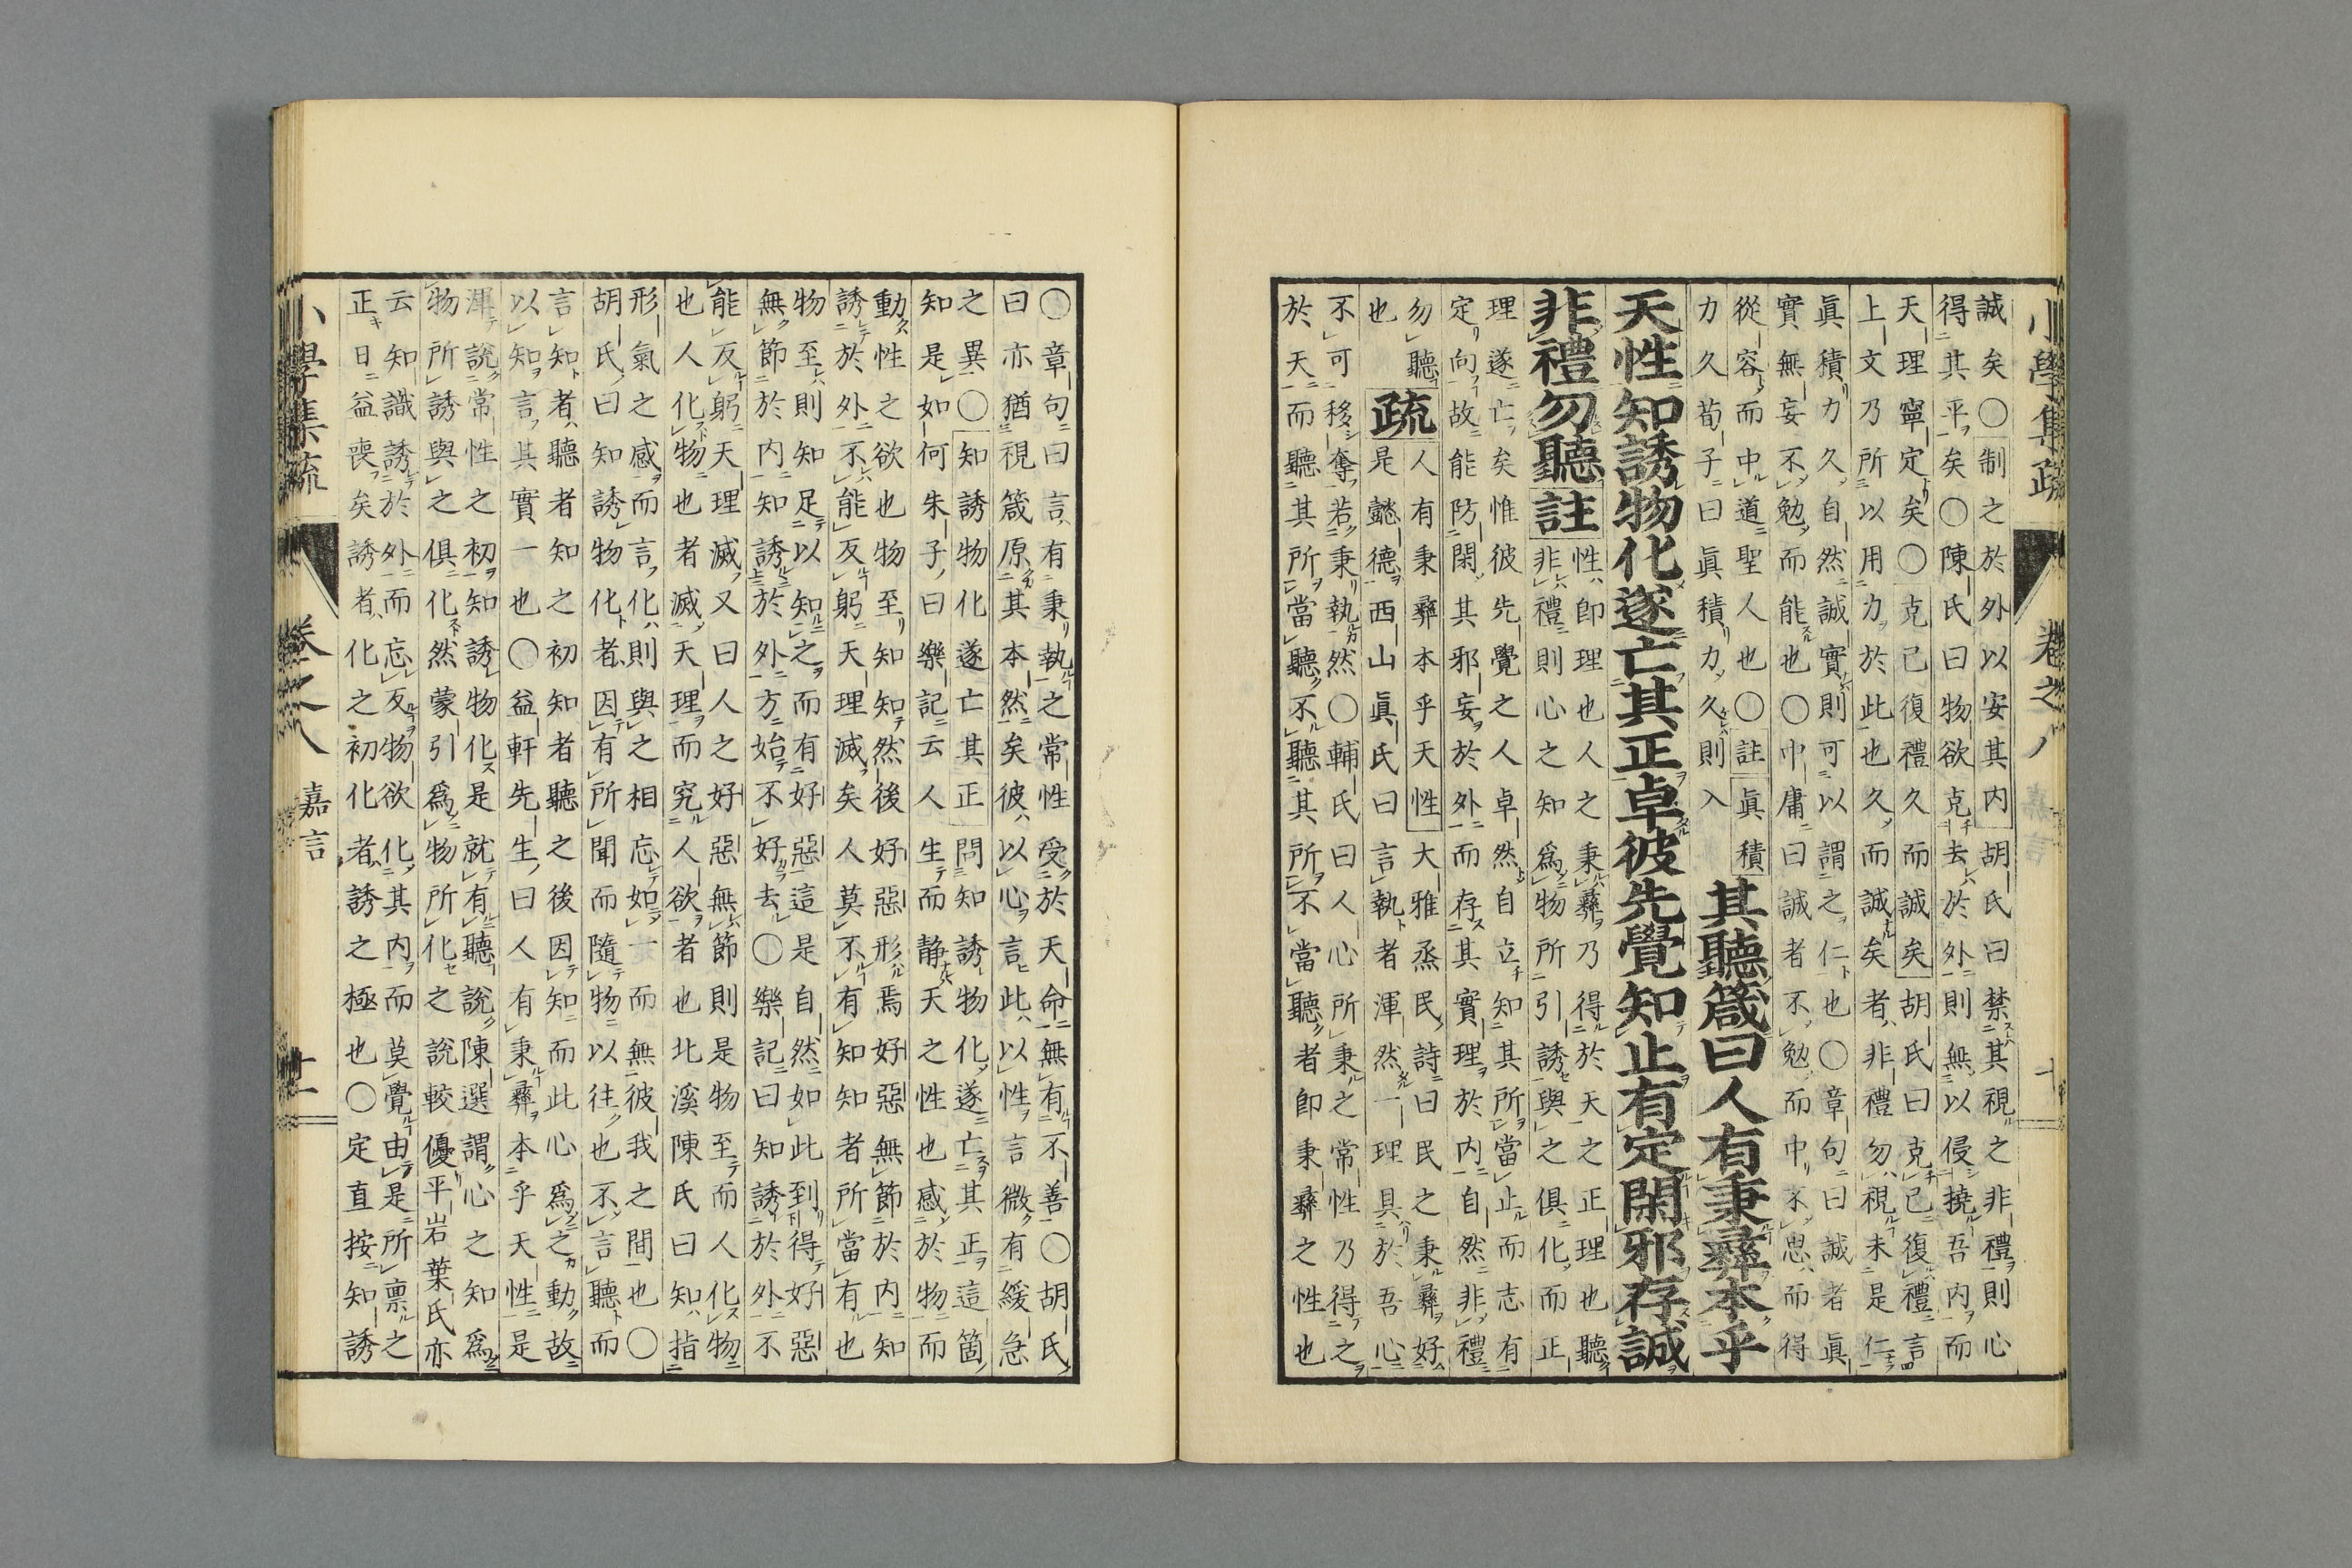 小學集疏　卷之八　嘉言　十
誠矣○制之於外以安其内胡氏曰禁其視之非禮則心
得其平矣○陳氏曰物欲克去於外則無以侵撓吾内而
天理寧定矣○克己復禮久而誠矣胡氏曰克己復禮言
上文乃所以用力於此也久而誠矣者非禮勿視未是仁
眞積力久自然誠實則可以謂之仁也○章句曰誠者眞
實無妄不勉而能也○中庸曰誠者不勉而中不思而得
從容而中道聖人也○註眞積
力久荀子曰眞積力久則入
其聽箴曰人有秉彝本乎
天性知誘物化遂亡其正卓彼先覺知止有定閑邪存誠
非禮勿聽註
性即理也人之秉彝乃得於天之正理也聽
非禮則心之知爲物所引誘與之俱化而正
理遂亡矣惟彼先覺之人卓然自立知其所當止而志有
定向故能防閑其邪妄於外而存其實理於内自然非禮
勿聽
也
疏
人有秉彝本乎天性大雅烝民詩曰民之秉彝好
是懿德西山眞氏曰言執者渾然一理具於吾心
不可移奪若秉執然○輔氏曰人心所秉之常性乃得之
於天而聽其所當聽不聽其所不當聽者即秉彝之性也
○章句曰言有秉執之常性受於天命無有不善○胡氏
曰亦猶視箴原其本然矣彼以心言此以性言微有緩急
之異○知誘物化遂亡其正問知誘物化遂亡其正這箇
知是如何朱子曰樂記云人生而静天之性也感於物而
動性之欲也物至知知然後好惡形焉好惡無節於内知
誘於外不能反躬天理滅矣人莫不有知知者所當有也
物至則知足以知之而有好惡這是自然如此到得好惡
無節於内知誘於外方始不好去○樂記曰知誘於外不
能反躬天理滅又曰人之好惡無節則是物至而人化物
也人化物也者滅天理而究人欲者也北溪陳氏曰知指
形氣之感而言化則與之相忘如一而無彼我之間也○
胡氏曰知誘物化者因有所聞而隨物以往也不言聽而
言知者聽者知之初知者聽之後因知而此心爲之動故
以知言其實一也○益軒先生曰人有秉彝本乎天性是
渾説常性之初知誘物化是就有聽説陳選謂心之知爲
物所誘與之俱化然蒙引爲物所化之説較優平岩葉氏亦
云知識誘於外而忘反物欲化其内而莫覺由是所禀之
正日益喪矣誘者化之初化者誘之極也○定直按知誘
小學集疏　卷之八　嘉言　十一